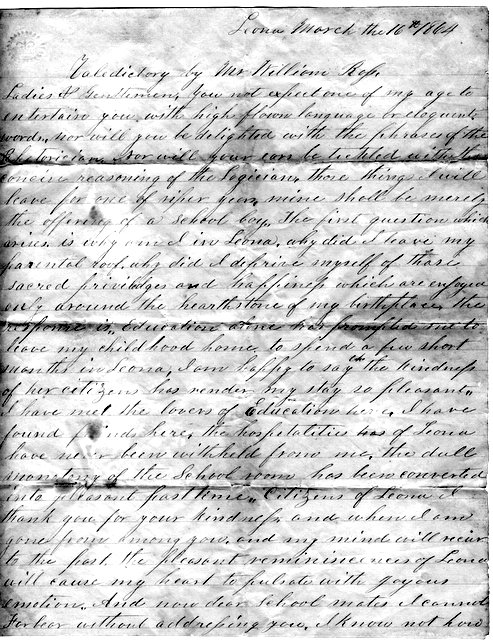 Leona March the 16th 1864
Valedictory by Mr William Ross.
Ladies & Gentlemen, you not expect one of my age to
entertain you with high flown language or eloquent
words, nor will you be delighted with the phrases of the
Rhetorician. Nor will your ears be tickled with the
concise reasoning of the logician, those things I will
leave for one of riper years, mine shall be merely
the offering of a school boy. The first question which
arises is why am I in Leona, why did I leave my
parental roof, why did I deprive myself of those
sacred priveledges and happiness which are enjoyed
only around the hearthstone of my birthplace, the
response is, Education alone has prompted me to
leave my childhood home, to spend a few short
months in Leona, I am happy to say the kindness
of her citizens has render my stay so pleasant,
I have met the lovers of Education here, I have
found friends here, the hospitalities of Leona
have never been withheld from me, the dull
monotony of the School room has been converted
into pleasant pasttime. Citizens of Leona I
thank you for your kindness, and when I am
gone from among you, and my mind will recur
to the past, the pleasant reminiscences of Leona
will cause my heart to pulsate with joyous
emotion. And now dear School mates I cannot
Forbear without addressing you, I know not how